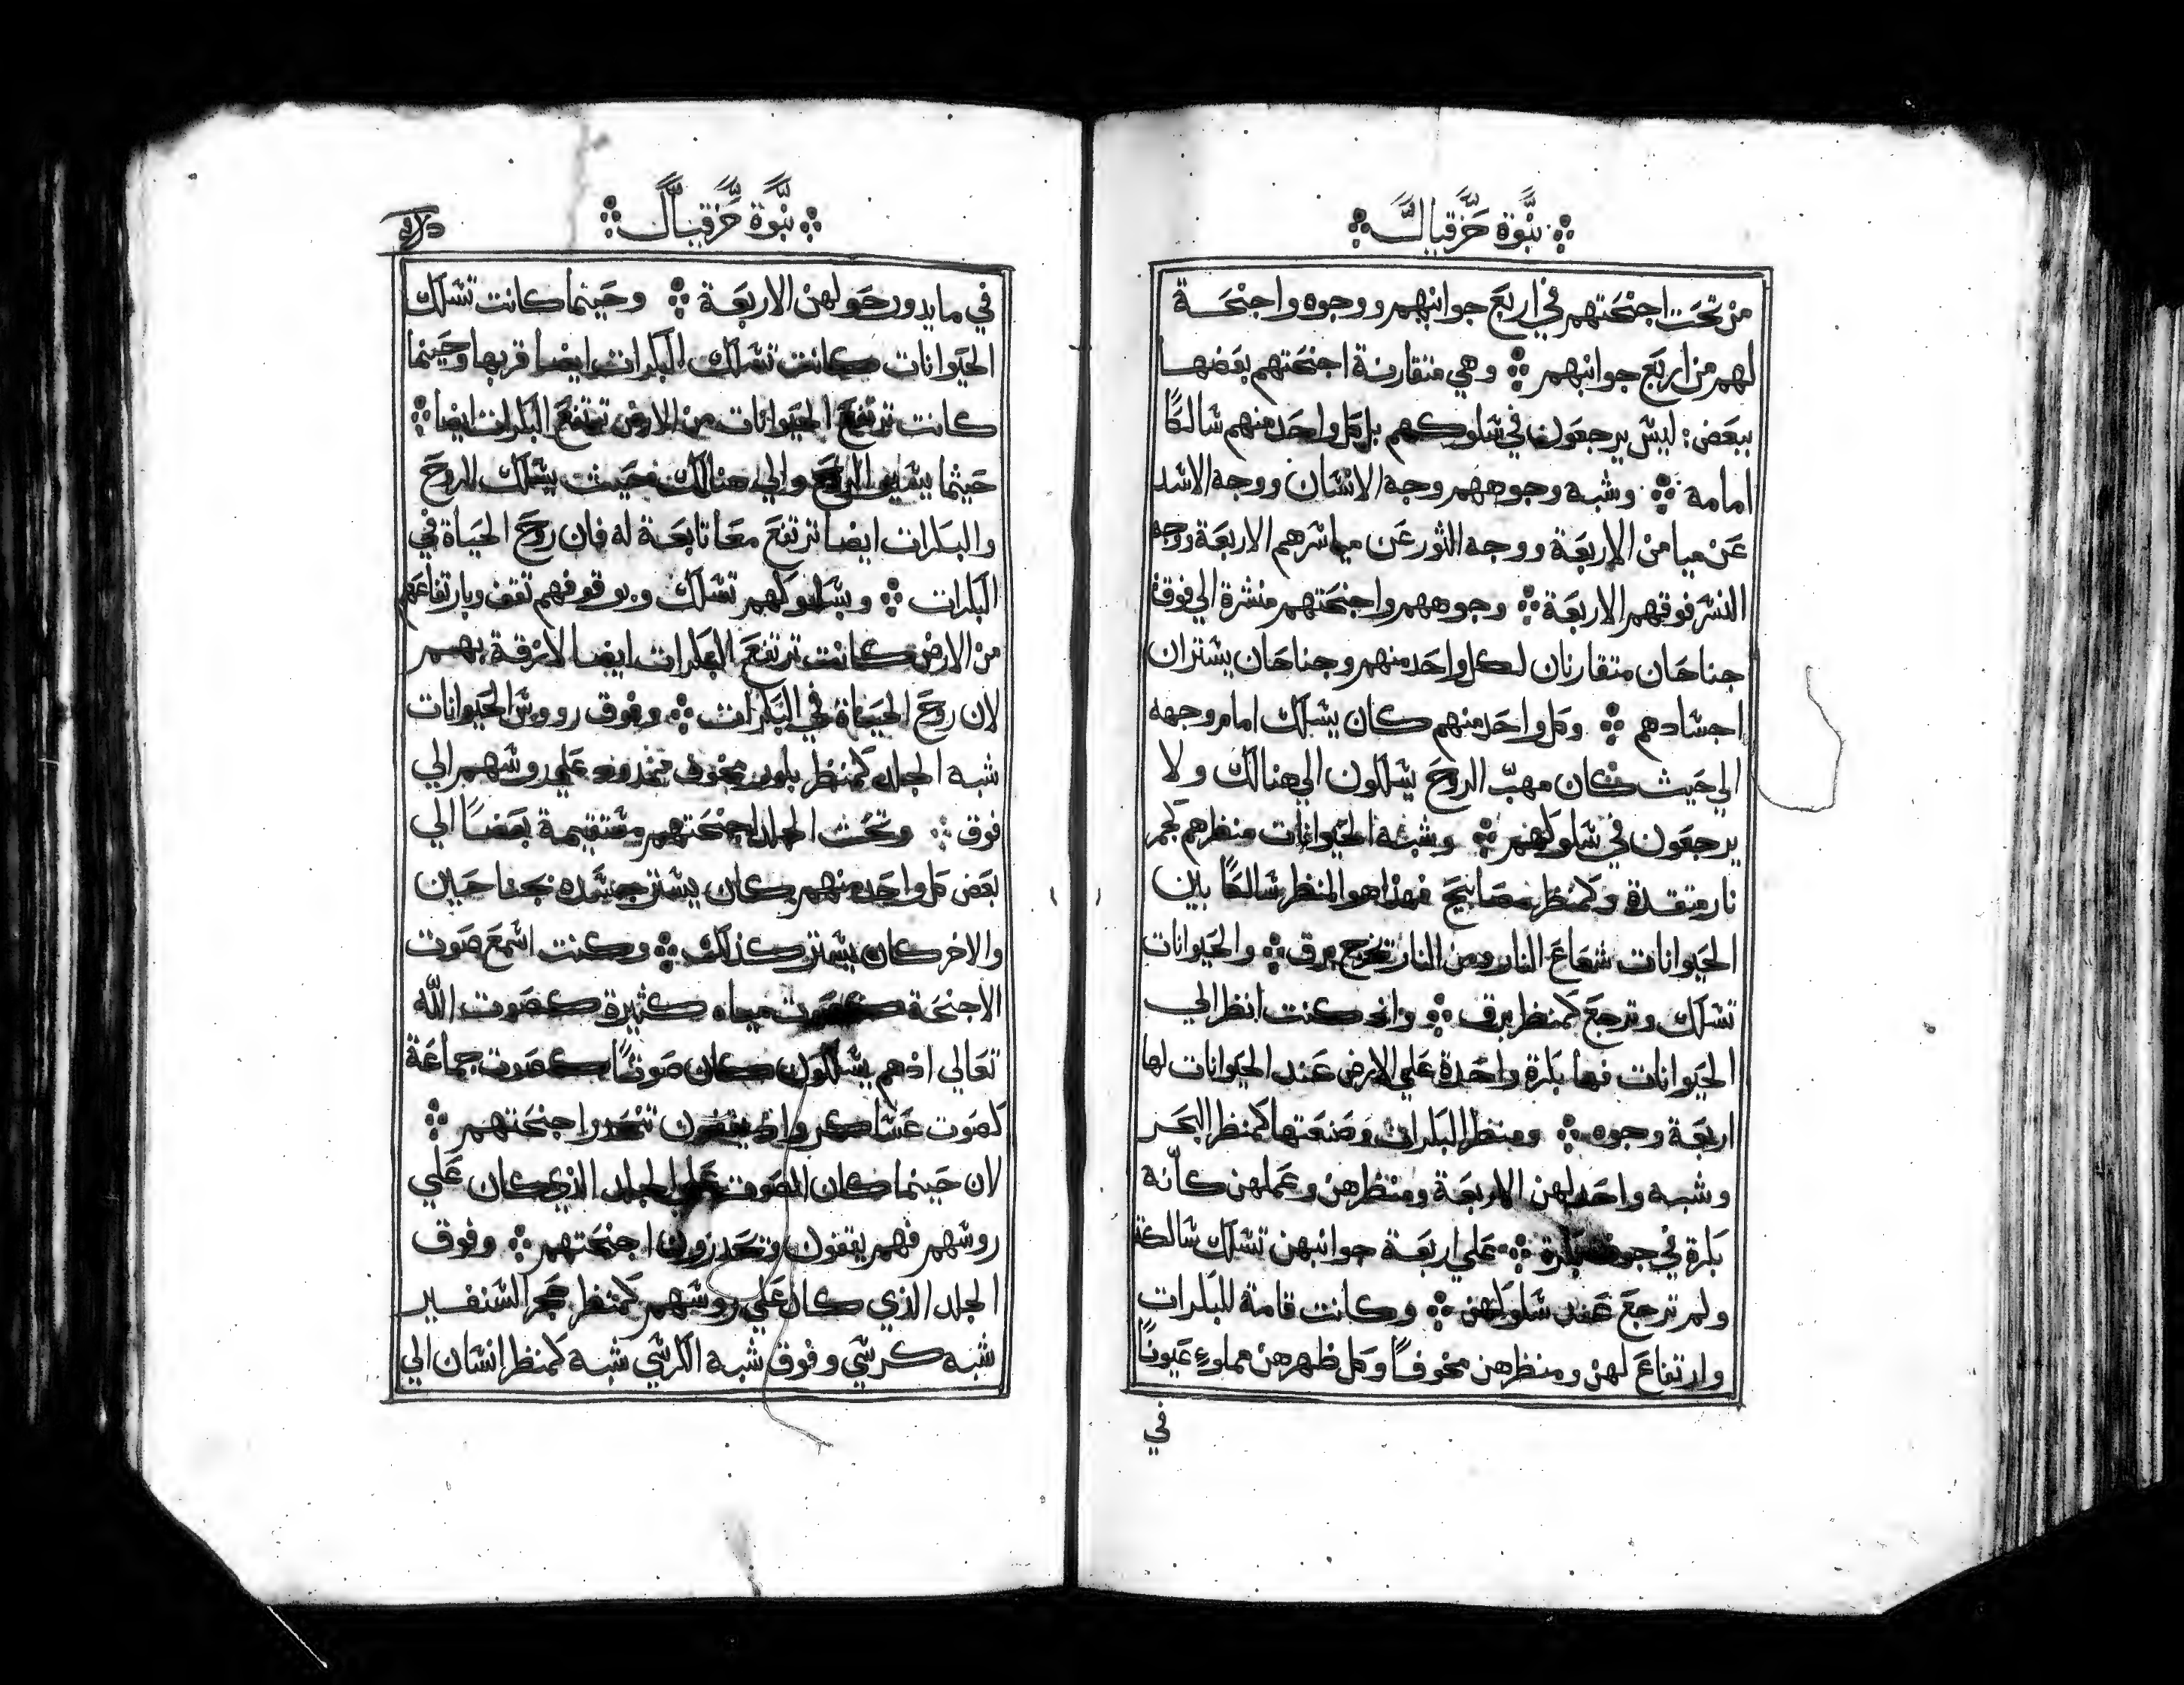 نبوة حزقيال
من تحت اجنحتهم في اربع جوانبهم ووجوه واجنحة
لهم من اربع جوانبهم وهي متقارنة اجنحتهم بعضها
ببعض: ليس يرجعون في سلوكهم بل كل واحد منهم سالكًا
امامه وشبه وجوههم وجه الانسان ووجه الاسد
عن ميامن الاربعة ووجه الثور عن مياسرهم الاربعة ووجه
النسر فوقهم الاربعة وجوههم واجنحتهم منشرة الي فوق
جناحان متقارنان لكل واحد منهم وجناحان يستران
اجسادهم وكل واحد منهم كان يسلك امام وجهه
الي حيث كان مهبّ الروح يسلكون الي هنالك ولا
يرجعون في سلوكهم وشبه الحيوانات منظرهم كجمر
نار متقدة وكمنظر مصابيح فهذا هو المنظر سالكًا بين
الحيوانات شعاع النار ومن النار تخرج برق والحيوانات
تسلك وترجع كمنظر برق واذ كنت انظر الي
الحيوانات فها بكرة واحدة علي الارض عند الحيوانات لها
اربعة وجوه ومنظر البكرات وصنعتها كمنظر البحر
وشبه واحد لهن الاربعة ومنظرهن وعملهن كانه
بكرة في جوف بكرة علي اربعة جوانبهن تسلك سالكة
ولم ترجع عند سلوكهن وكانت قامة للبكرات
وارتفاع لهن ومنظرهن مخوفًا وكل ظهرهن مملوءٍ عيونًا
في
نبوة حزقيال
في ما يدور حولهن الاربعة وحينما كانت تسلك
الحيوانات كانت تسلك البكرات ايضا قربها وحينما
كانت ترتفع الحيوانات من الارض ترتفع البكرات ايضا
حيثما الروح والي هنالك حيث يسلك الروح
والبكرات ايضا ترتفع معا تابعة له فان روح الحياة في
البكرات وبسلوكهم تسلك وبوقوفهم تقف وبارتفاعهم
من الارض كانت ترتفع البكرات ايضا لازقة بهم
لان روح الحياة في البكرات وفوق رووس الحيوانات
شبه الجلد كمنظر بلور مخوف ممدود علي روسهم الي
فوق وتحت الجلد اجنحتهم مستقيمة بعضًا الي
بعض كل واحد منهم كان يستر جسده بجناحين
والاخر كان يستر كذلك وكنت اسمع صوت
الاجنحة كصوت مياه كثيرة كصوت الله
تعالي اذ هم يسلكون كان صوتًا كصوت جماعة
كصوت عساكر واذ يقفون تنحدر اجنحتهم
لان حينما كان الصوت علي الجلد الذي كان علي
روسهم فهم يقفون اجنحتهم وفوق
الجلد الذي كان علي روسهم كمنظر حجر السنفير
شبه كرسي وفوق شبه الكرسي شبه كمنظر انسان الي